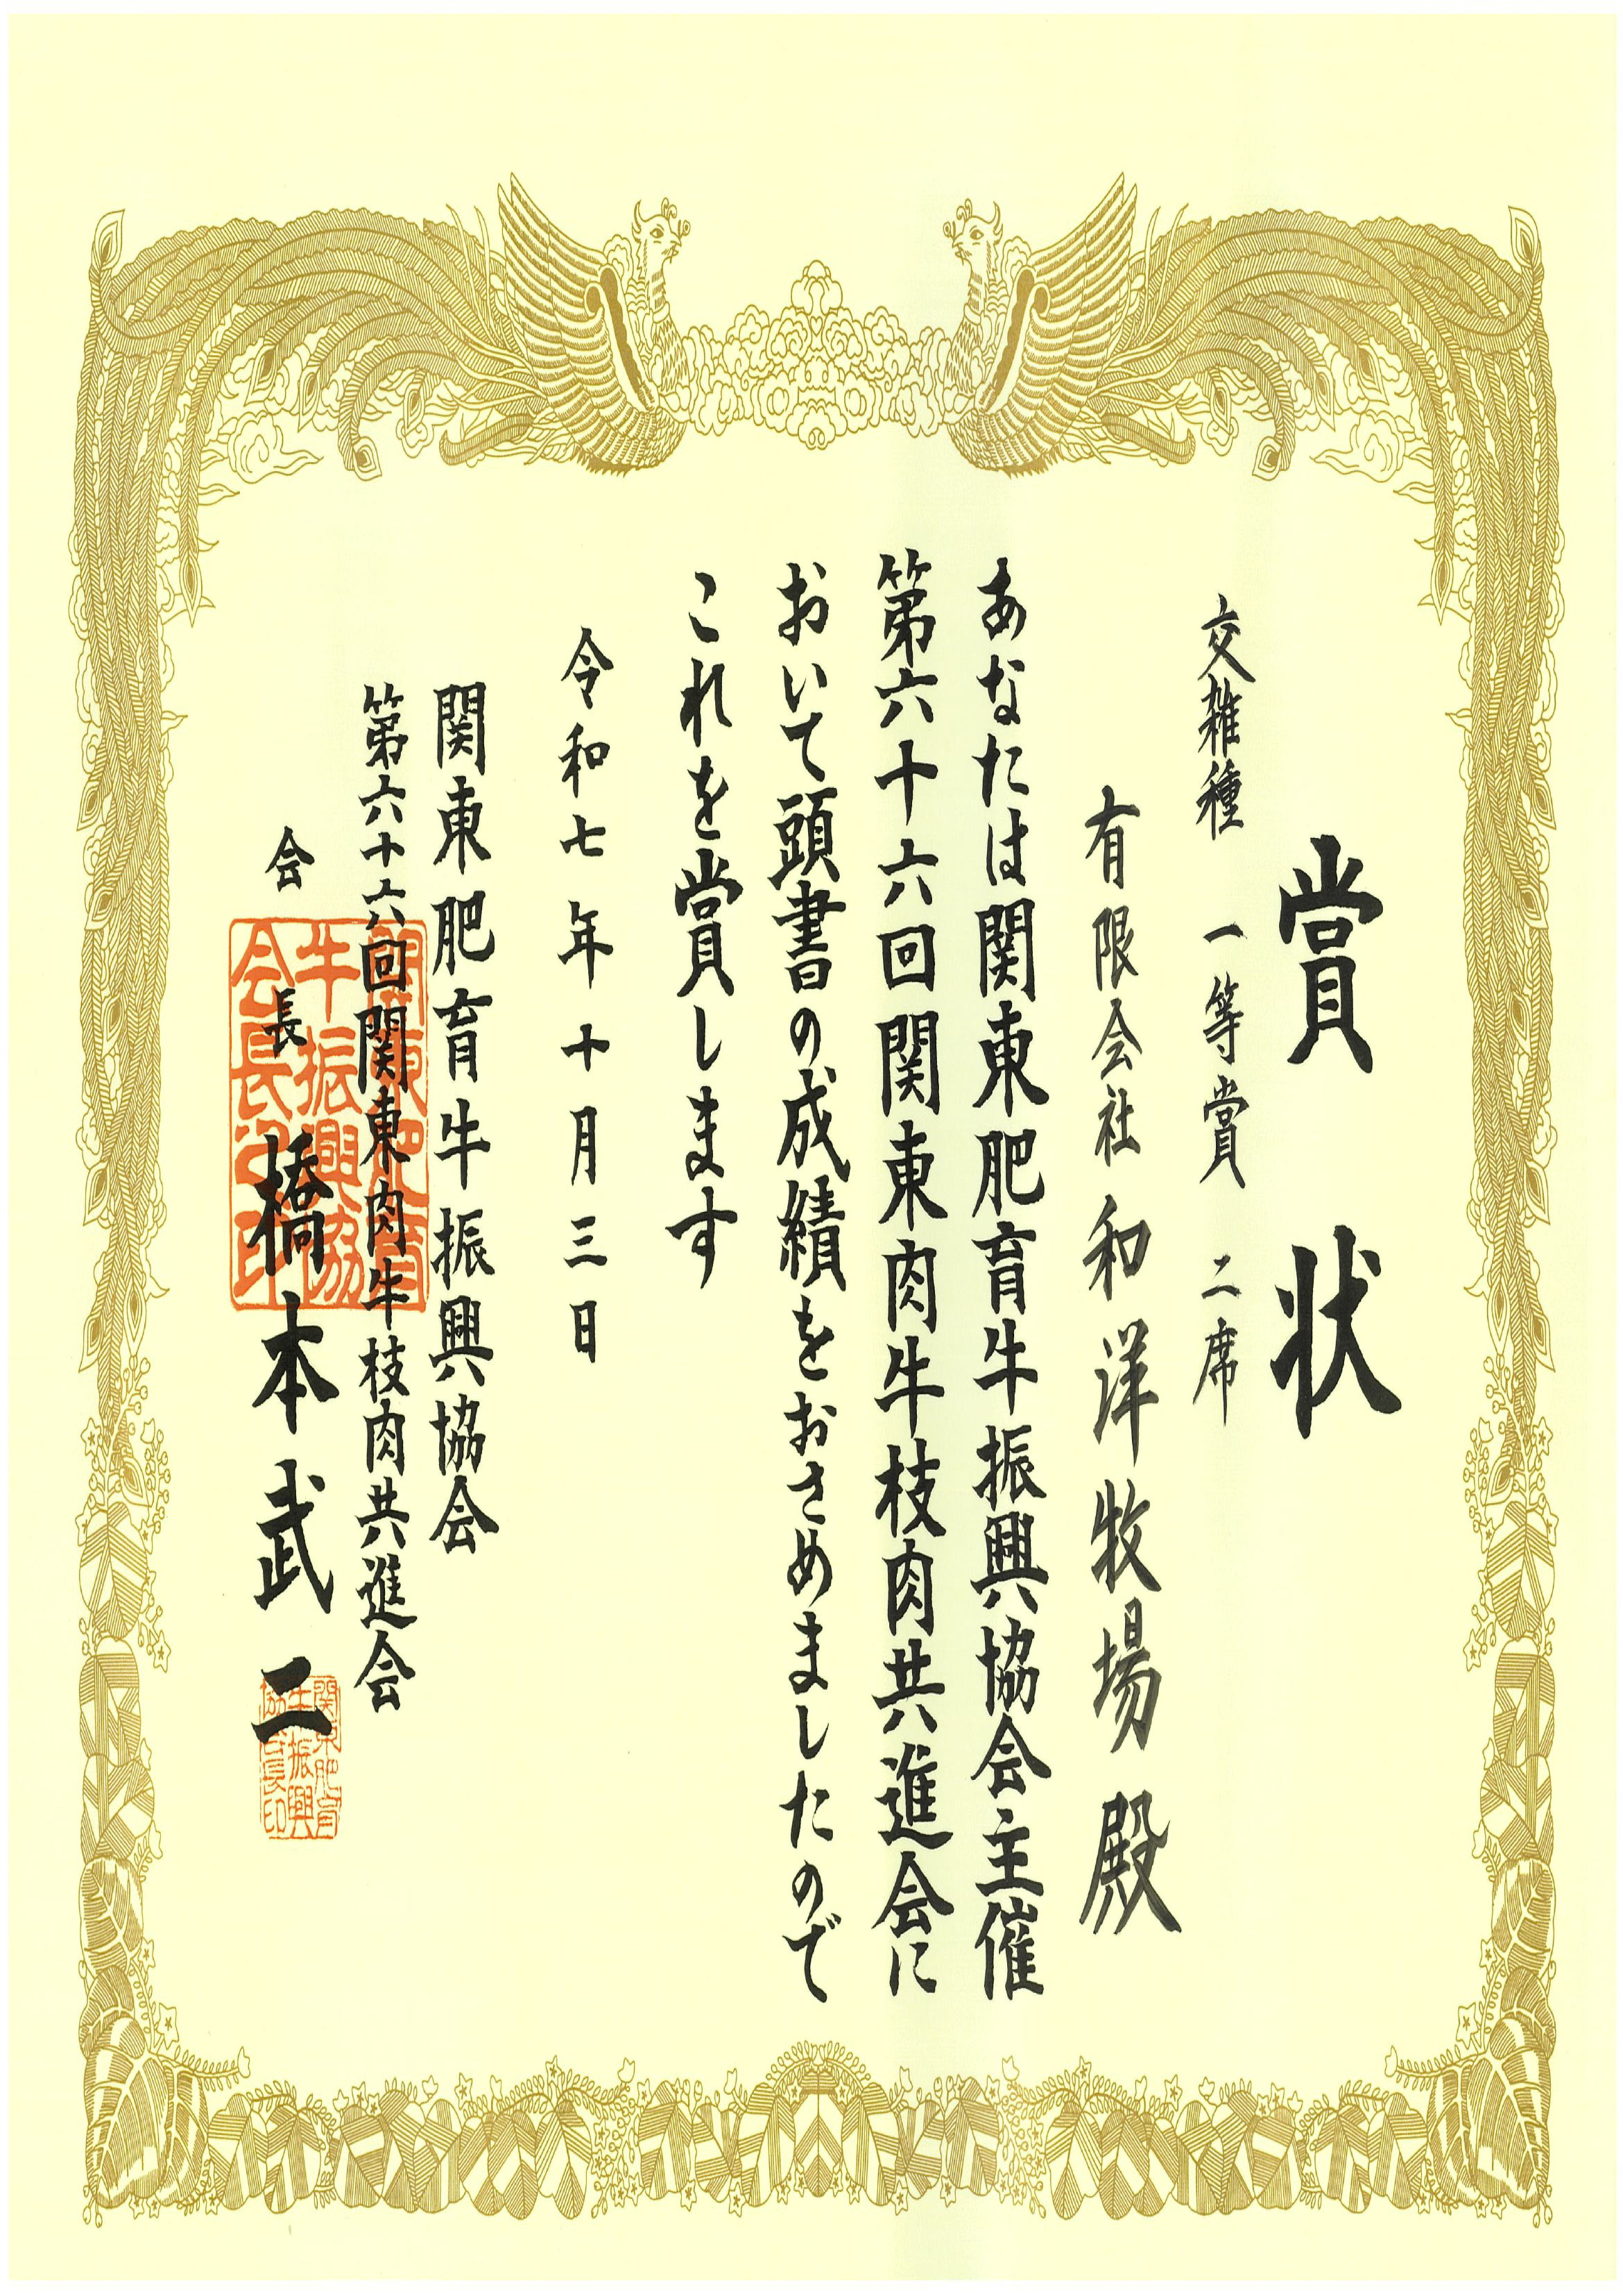 賞状
交雑種 一等賞 二席
有限会社 和洋牧場殿
あなたは関東肥育牛振興協会主催
第六十六回関東肉牛枝肉共進会に
おいて頭書の成績をおさめましたので
これを賞します
令和七年十月三日
関東肥育牛振興協会
第六十六回関東肉牛枝肉共進会
会長 橋本武二
関東肥育
牛振興協
会長之印
関東肥育
牛振興
協会長印